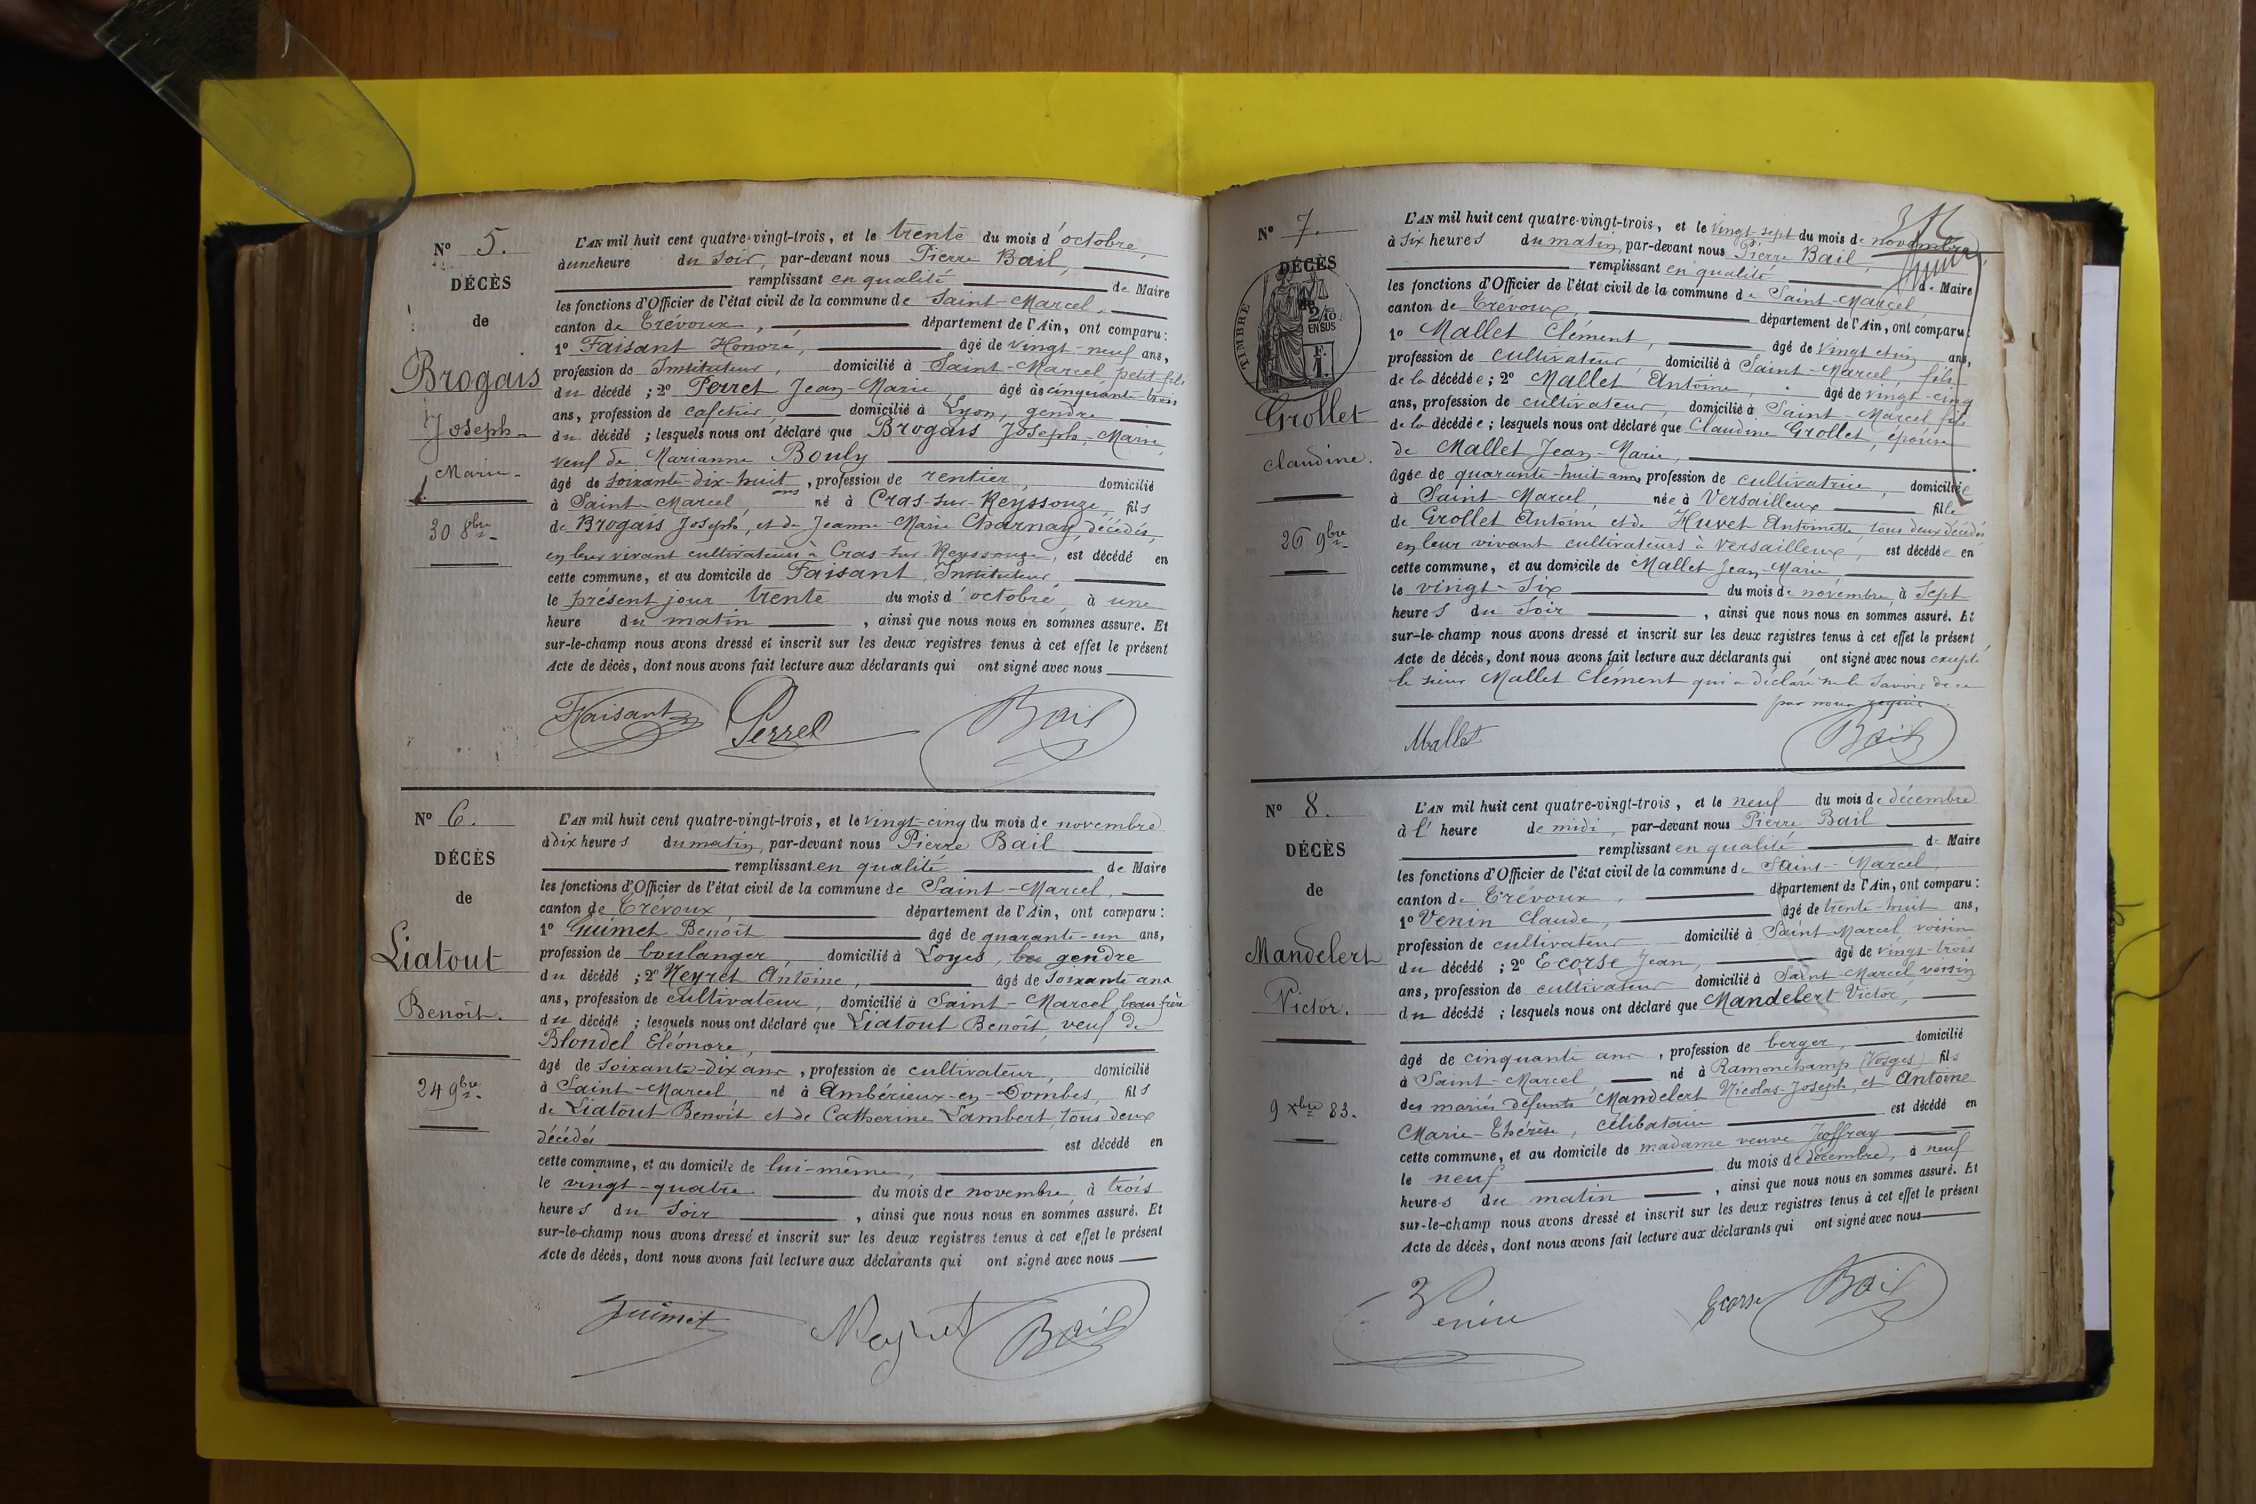 N° 5.
DÉCÈS
de
Brogais
Joseph-
Marie-
30 8bre
L'AN mil huit cent quatre-vingt-trois, et le trente du mois d'octobre,
à une heure du soir, par-devant nous Pierre Bail,
remplissant en qualité de Maire
les fonctions d'Officier de l'état civil de la commune de Saint-Marcel,
canton de Trévoux, département de l'Ain, ont comparu:
1° Faisant Honoré, âgé de vingt-neuf ans,
profession de Instituteur, domicilié à Saint-Marcel, petit-fils
du décédé ; 2° Perret Jean-Marie, âgé de cinquante-trois
ans, profession de cafetier, domicilié à Lyon, gendre
du décédé ; lesquels nous ont déclaré que Brogais Joseph-Marie,
veuf de Marianne Bouly
âgé de soixante-dix-huit ans, profession de rentier, domicilié
à Saint-Marcel, né à Cras-sur-Reyssouze, fils
de Brogais Joseph, et de Jeanne-Marie Charnay, décédés,
en leur vivant cultivateurs à Cras-sur-Reyssouze, est décédé en
cette commune, et au domicile de Faisant, Instituteur,
le présent jour trente du mois d'octobre, à une
heure du matin, ainsi que nous nous en sommes assuré. Et
sur-le-champ nous avons dressé et inscrit sur les deux registres tenus à cet effet le présent
Acte de décès, dont nous avons fait lecture aux déclarants qui ont signé avec nous
Faisant Perret Bail
N° 6.
DÉCÈS
de
Liatout
Benoît.
24 9bre
L'AN mil huit cent quatre-vingt-trois, et le vingt-cinq du mois de novembre
à dix heures du matin, par-devant nous Pierre Bail
remplissant en qualité de Maire
les fonctions d'Officier de l'état civil de la commune de Saint-Marcel,
canton de Trévoux, département de l'Ain, ont comparu:
1° Guimet Benoît âgé de quarante-un ans,
profession de boulanger, domicilié à Loyes, gendre
du décédé ; 2° Neyret Antoine, âgé de soixante ans
ans, profession de cultivateur, domicilié à Saint-Marcel, beau-frère
du décédé ; lesquels nous ont déclaré que Liatout Benoît, veuf de
Blondel Eléonore,
âgé de soixante-dix ans, profession de cultivateur, domicilié
à Saint-Marcel, né à Ambérieux-en-Dombes, fils
de Liatout Benoît et de Catherine Lambert, tous deux
décédés est décédé en
cette commune, et au domicile de lui-même,
le vingt-quatre du mois de novembre à trois
heures du soir, ainsi que nous nous en sommes assuré. Et
sur-le-champ nous avons dressé et inscrit sur les deux registres tenus à cet effet le présent
Acte de décès, dont nous avons fait lecture aux déclarants qui ont signé avec nous
Guimet Neyret Bail
N° 7.
DÉCÈS
TIMBRE
2/10
EN SUS
F.
1.
Grollet
Claudine.
26 9bre
L'AN mil huit cent quatre-vingt-trois, et le vingt-sept du mois de novembre,
à six heures du matin, par-devant nous Pierre Bail,
remplissant en qualité de Maire
les fonctions d'Officier de l'état civil de la commune de Saint-Marcel,
canton de Trévoux, département de l'Ain, ont comparu:
1° Mallet Clément, âgé de vingt et un ans,
profession de cultivateur, domicilié à Saint-Marcel, fils
de la décédée ; 2° Mallet Antoine, âgé de vingt-cinq
ans, profession de cultivateur, domicilié à Saint-Marcel, fils
de la décédée ; lesquels nous ont déclaré que Claudine Grollet, épouse
de Mallet Jean-Marie,
âgée de quarante-huit ans, profession de cultivatrice, domiciliée
à Saint-Marcel, née à Versailleux fille
de Grollet Antoine et de Huvet Antoinette, tous deux décédés
en leur vivant cultivateurs à Versailleux, est décédée en
cette commune, et au domicile de Mallet Jean-Marie,
le vingt-six du mois de novembre, à sept
heures du soir, ainsi que nous nous en sommes assuré. Et
sur-le-champ nous avons dressé et inscrit sur les deux registres tenus à cet effet le présent
Acte de décès, dont nous avons fait lecture aux déclarants qui ont signé avec nous excepté
le sieur Mallet Clément qui a déclaré ne le savoir de ce
par nous requis.
Mallet Bail
N° 8.
DÉCÈS
de
Mandelert
Victor.
9 xbre 83.
L'AN mil huit cent quatre-vingt-trois, et le neuf du mois de décembre
à l'heure de midi, par-devant nous Pierre Bail
remplissant en qualité de Maire
les fonctions d'Officier de l'état civil de la commune de Saint-Marcel,
canton de Trévoux, département de l'Ain, ont comparu:
1° Venin Claude, âgé de trente-huit ans,
profession de cultivateur, domicilié à Saint-Marcel, voisin
du décédé ; 2° Ecorse Jean, âgé de vingt-trois
ans, profession de cultivateur domicilié à Saint-Marcel, voisin
du décédé ; lesquels nous ont déclaré que Mandelert Victor,
âgé de cinquante ans, profession de berger, domicilié
à Saint-Marcel, né à Ramonchamp (Vosges) fils
des mariés défunts Mandelert Nicolas-Joseph, et Antoine
Marie-Thérèse, célibataire est décédé en
cette commune, et au domicile de madame veuve Joffray
le neuf du mois de décembre, à neuf
heures du matin, ainsi que nous nous en sommes assuré. Et
sur-le-champ nous avons dressé et inscrit sur les deux registres tenus à cet effet le présent
Acte de décès, dont nous avons fait lecture aux déclarants qui ont signé avec nous
Venin Ecorse Bail